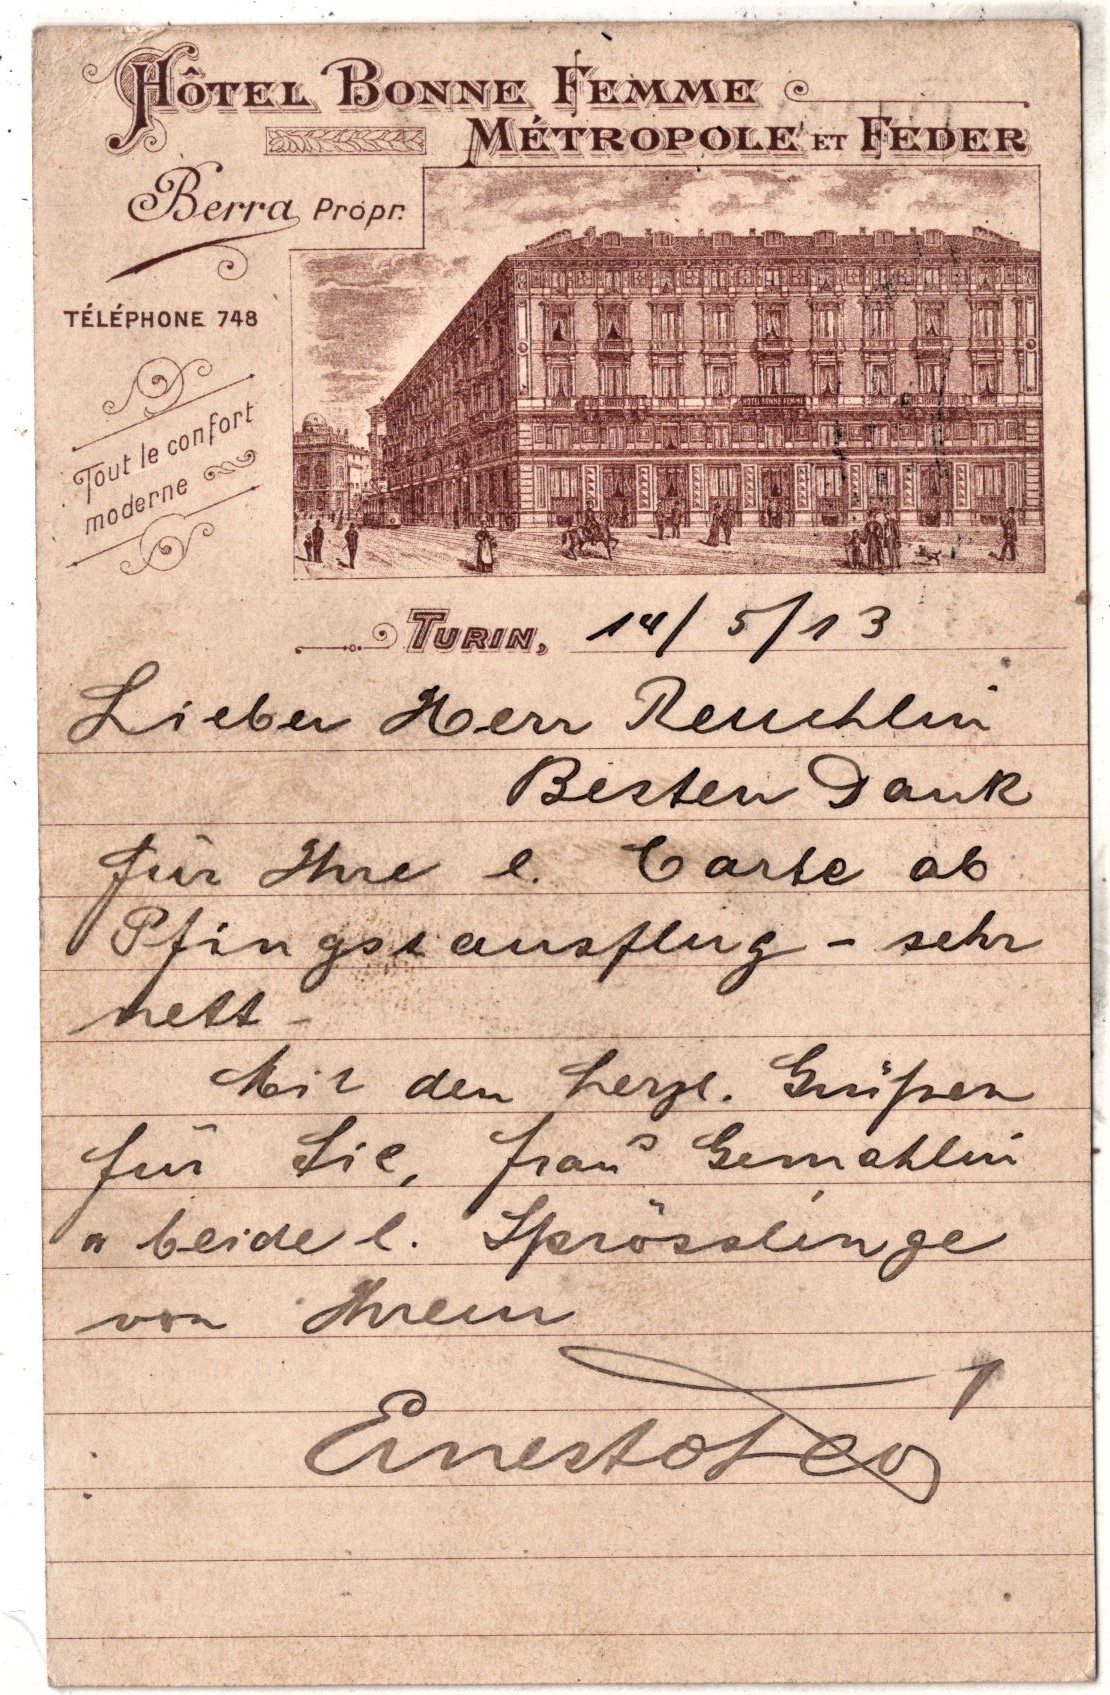 HÔTEL BONNE FEMME
MÉTROPOLE ET FEDER
Berra Propr.
TÉLÉPHONE 748
Tout le confort
moderne
HOTEL BONNE FEMME
TURIN, 14/5/13
Lieber Herr Reuchlin
Besten Dank
für Ihre l. Carte ab
Pfingstausflug – sehr
nett –
Mit den herzl. Grüßen
für Sie, Frau Gemahlin
u beide l. Sprösslinge
von Ihrem
Ernesto